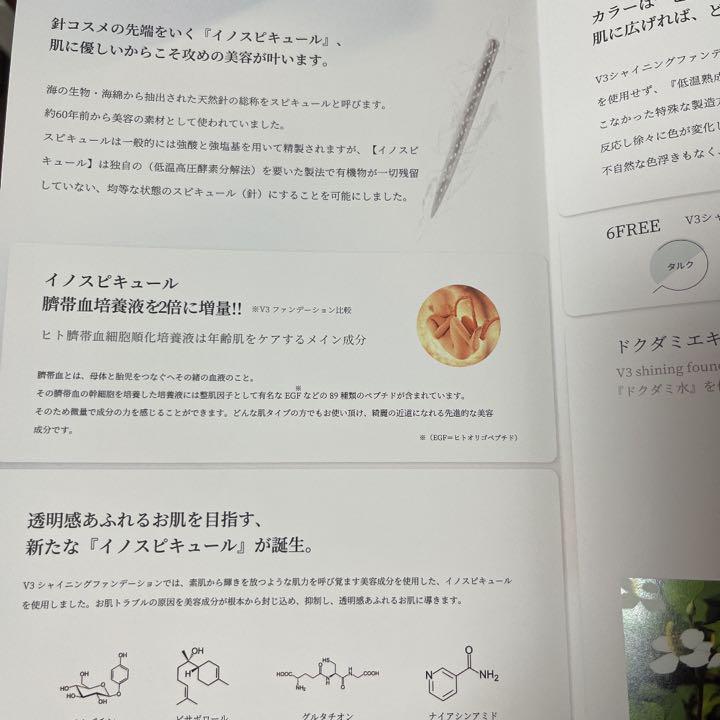 針コスメの先端をいく『イノスピキュール』、
肌に優しいからこそ攻めの美容が叶います。
海の生物・海綿から抽出された天然針の総称をスピキュールと呼びます。
約60年前から美容の素材として使われていました。
スピキュールは一般的には強酸と強塩基を用いて精製されますが、【イノスピ
キュール】は独自の（低温高圧酵素分解法）を要いた製法で有機物が一切残留
していない、均等な状態のスピキュール（針）にすることを可能にしました。
イノスピキュール
臍帯血培養液を2倍に増量!! ※V3 ファンデーション比較
ヒト臍帯血細胞順化培養液は年齢肌をケアするメイン成分
臍帯血とは、母体と胎児をつなぐへその緒の血液のこと。
その臍帯血の幹細胞を培養した培養液には整肌因子として有名な EGF※などの 89 種類のペプチドが含まれています。
そのため微量で成分の力を感じることができます。どんな肌タイプの方でもお使い頂け、綺麗の近道になれる先進的な美容
成分です。
※（EGF＝ヒトオリゴペプチド）
透明感あふれるお肌を目指す、
新たな『イノスピキュール』が誕生。
V3 シャイニングファンデーションでは、素肌から輝きを放つような肌力を呼び覚ます美容成分を使用した、イノスピキュール
を使用しました。お肌トラブルの原因を美容成分が根本から封じ込め、抑制し、透明感あふれるお肌に導きます。
OH
HO
O
OH
OH
OH
OH
H
HS
HOOC
NH2
O
H
N
N
H
O
COOH
O
N
NH2
ビサボロール
グルタチオン
ナイアシンアミド
カラーは
肌に広げれば、と
V3シャイニングファンデ
を使用せず、『低温熟成
こなかった特殊な製造
反応し徐々に色が変化し
不自然な色浮きもなく、
6FREE
V3シャ
タルク
ドクダミエキ
V3 shining found
『ドクダミ水』を